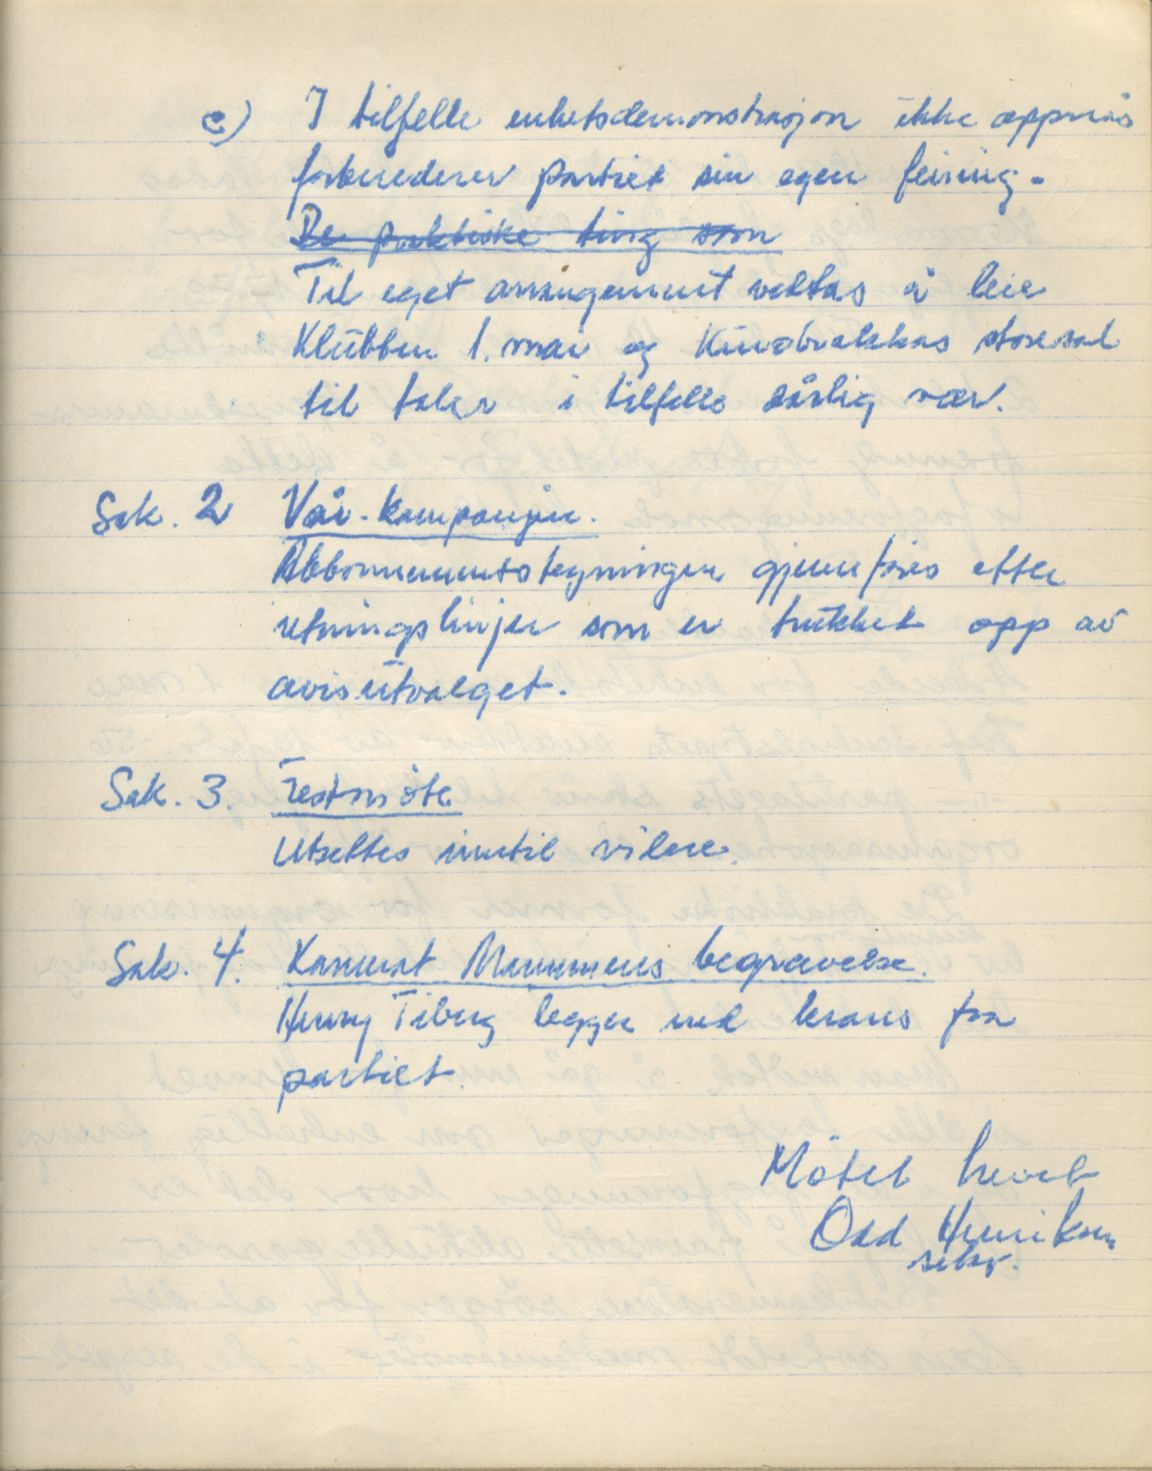 c) I tilfelle enhetsdemonstrasjon ikke oppnås
forbereder partiet sin egen feiring.
De praktiske ting som
Til eget arrangement vedtas å leie
Klubben 1. mai og Kinobrakkas storesal
til taler i tilfelle dårlig vær.
Sak. 2 Vår-kampanjen.
Abbonnementstegningen gjennføres etter
retningslinjer som er trukket opp av
avisutvalget.
Sak. 3. Festmöte
Utsettes inntil videre.
Sak. 4. Kamerat begravelse.
Henry legger ned krans fra
partiet.
Mötet hevet
Odd Henriksen
sekr.